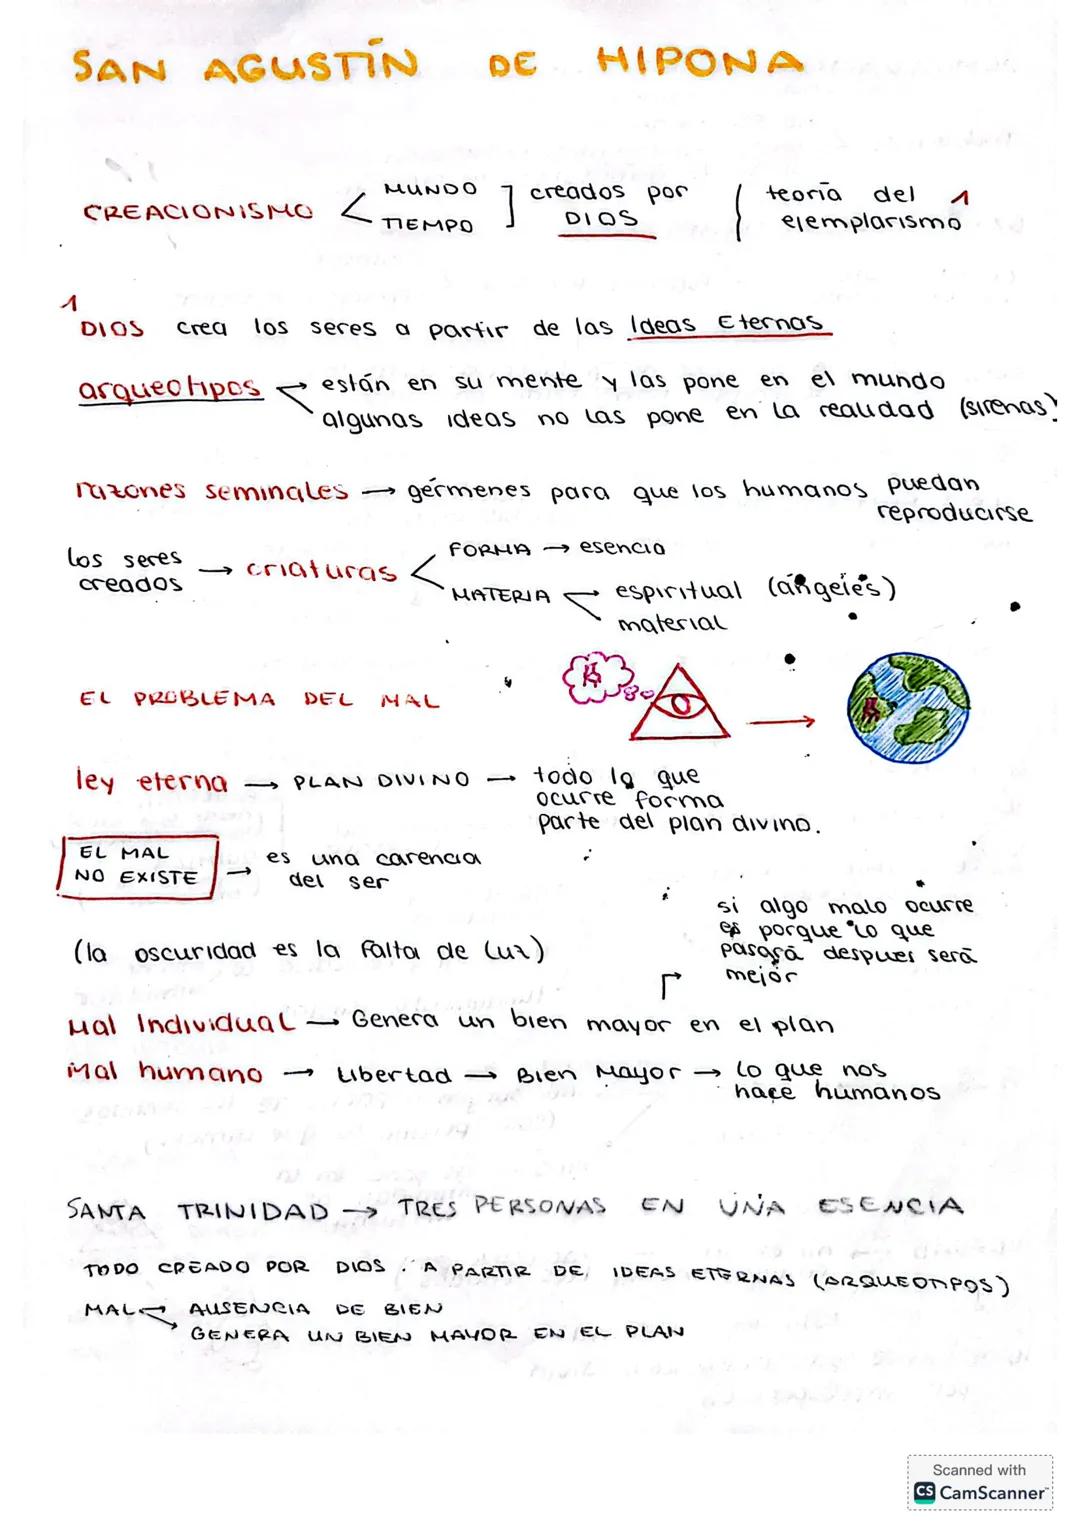 SAN AGUSTÍN DE HIPONA
CREACIONISMO < MUNDO ] creados por ( teoría del 1
TIEMPO DIOS ejemplarismo
1
DIOS crea los seres a partir de las Ideas Eternas
arqueotipos → están en su mente y las pone en el mundo
algunas ideas no las pone en la realidad (sirenas)
razones seminales → gérmenes para que los humanos puedan
reproducirse
los seres
creados → criaturas < FORMA → esencia
MATERIA → espiritual (ángeles)
material
EL PROBLEMA DEL MAL
ley eterna → PLAN DIVINO → todo lo que
ocurre forma
parte del plan divino.
EL MAL
NO EXISTE → es una carencia
del ser
si algo malo ocurre
es porque lo que
pasará despues será
mejor
(la oscuridad es la falta de luz)
Mal Individual → Genera un bien mayor en el plan
Mal humano → Libertad → Bien Mayor → lo que nos
hace humanos
SANTA TRINIDAD → TRES PERSONAS EN UNA ESENCIA
TODO CREADO POR DIOS. A PARTIR DE IDEAS ETERNAS (ARQUEOTIPOS)
MAL → AUSENCIA DE BIEN
GENERA UN BIEN MAYOR EN EL PLAN
Scanned with
CS CamScanner